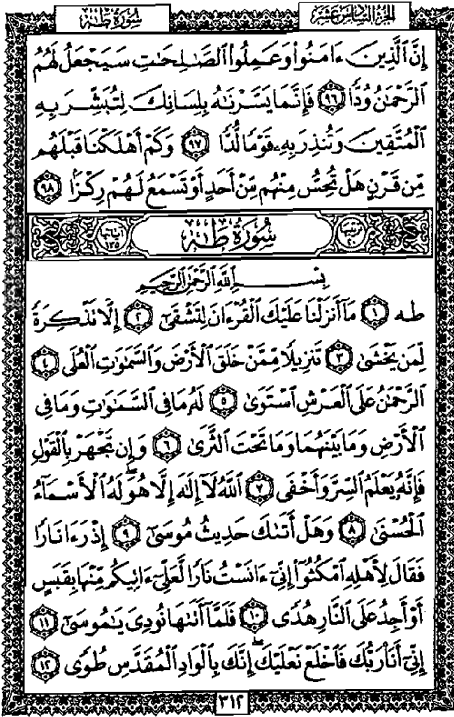 سُورَةُ طه الجزء السادس عشر
إِنَّ ٱلَّذِينَ ءَامَنُوا۟ وَعَمِلُوا۟ ٱلصَّـٰلِحَـٰتِ سَيَجْعَلُ لَهُمُ
ٱلرَّحْمَـٰنُ وُدًّا ٩٦ فَإِنَّمَا يَسَّرْنَـٰهُ بِلِسَانِكَ لِتُبَشِّرَ بِهِ
ٱلْمُتَّقِينَ وَتُنذِرَ بِهِۦ قَوْمًا لُّدًّا ٩٧ وَكَمْ أَهْلَكْنَا قَبْلَهُم
مِّن قَرْنٍ هَلْ تُحِسُّ مِنْهُم مِّنْ أَحَدٍ أَوْ تَسْمَعُ لَهُمْ رِكْزًۢا ٩٨
ترتيبها ٢٠ سُورَةُ طه آياتها ١٣٥
بِسْمِ ٱللَّهِ ٱلرَّحْمَـٰنِ ٱلرَّحِيمِ
طه ١ مَآ أَنزَلْنَا عَلَيْكَ ٱلْقُرْءَانَ لِتَشْقَىٰٓ ٢ إِلَّا تَذْكِرَةً
لِّمَن يَخْشَىٰ ٣ تَنزِيلًا مِّمَّنْ خَلَقَ ٱلْأَرْضَ وَٱلسَّمَـٰوَٰتِ ٱلْعُلَى ٤
ٱلرَّحْمَـٰنُ عَلَى ٱلْعَرْشِ ٱسْتَوَىٰ ٥ لَهُۥ مَا فِى ٱلسَّمَـٰوَٰتِ وَمَا فِى
ٱلْأَرْضِ وَمَا بَيْنَهُمَا وَمَا تَحْتَ ٱلثَّرَىٰ ٦ وَإِن تَجْهَرْ بِٱلْقَوْلِ
فَإِنَّهُۥ يَعْلَمُ ٱلسِّرَّ وَأَخْفَى ٧ ٱللَّهُ لَآ إِلَـٰهَ إِلَّا هُوَ ۖ لَهُ ٱلْأَسْمَآءُ
ٱلْحُسْنَىٰ ٨ وَهَلْ أَتَىٰكَ حَدِيثُ مُوسَىٰٓ ٩ إِذْ رَءَا نَارًا
فَقَالَ لِأَهْلِهِ ٱمْكُثُوٓا۟ إِنِّىٓ ءَانَسْتُ نَارًا لَّعَلِّىٓ ءَاتِيكُم مِّنْهَا بِقَبَسٍ
أَوْ أَجِدُ عَلَى ٱلنَّارِ هُدًى ١٠ فَلَمَّآ أَتَىٰهَا نُودِىَ يَـٰمُوسَىٰٓ ١١
إِنِّىٓ أَنَا۠ رَبُّكَ فَٱخْلَعْ نَعْلَيْكَ ۖ إِنَّكَ بِٱلْوَادِ ٱلْمُقَدَّسِ طُوًى ١٢
٣١٢